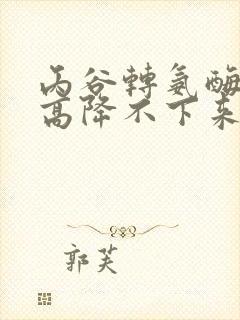 丙谷轉氨酶
高降不下來
郭芙